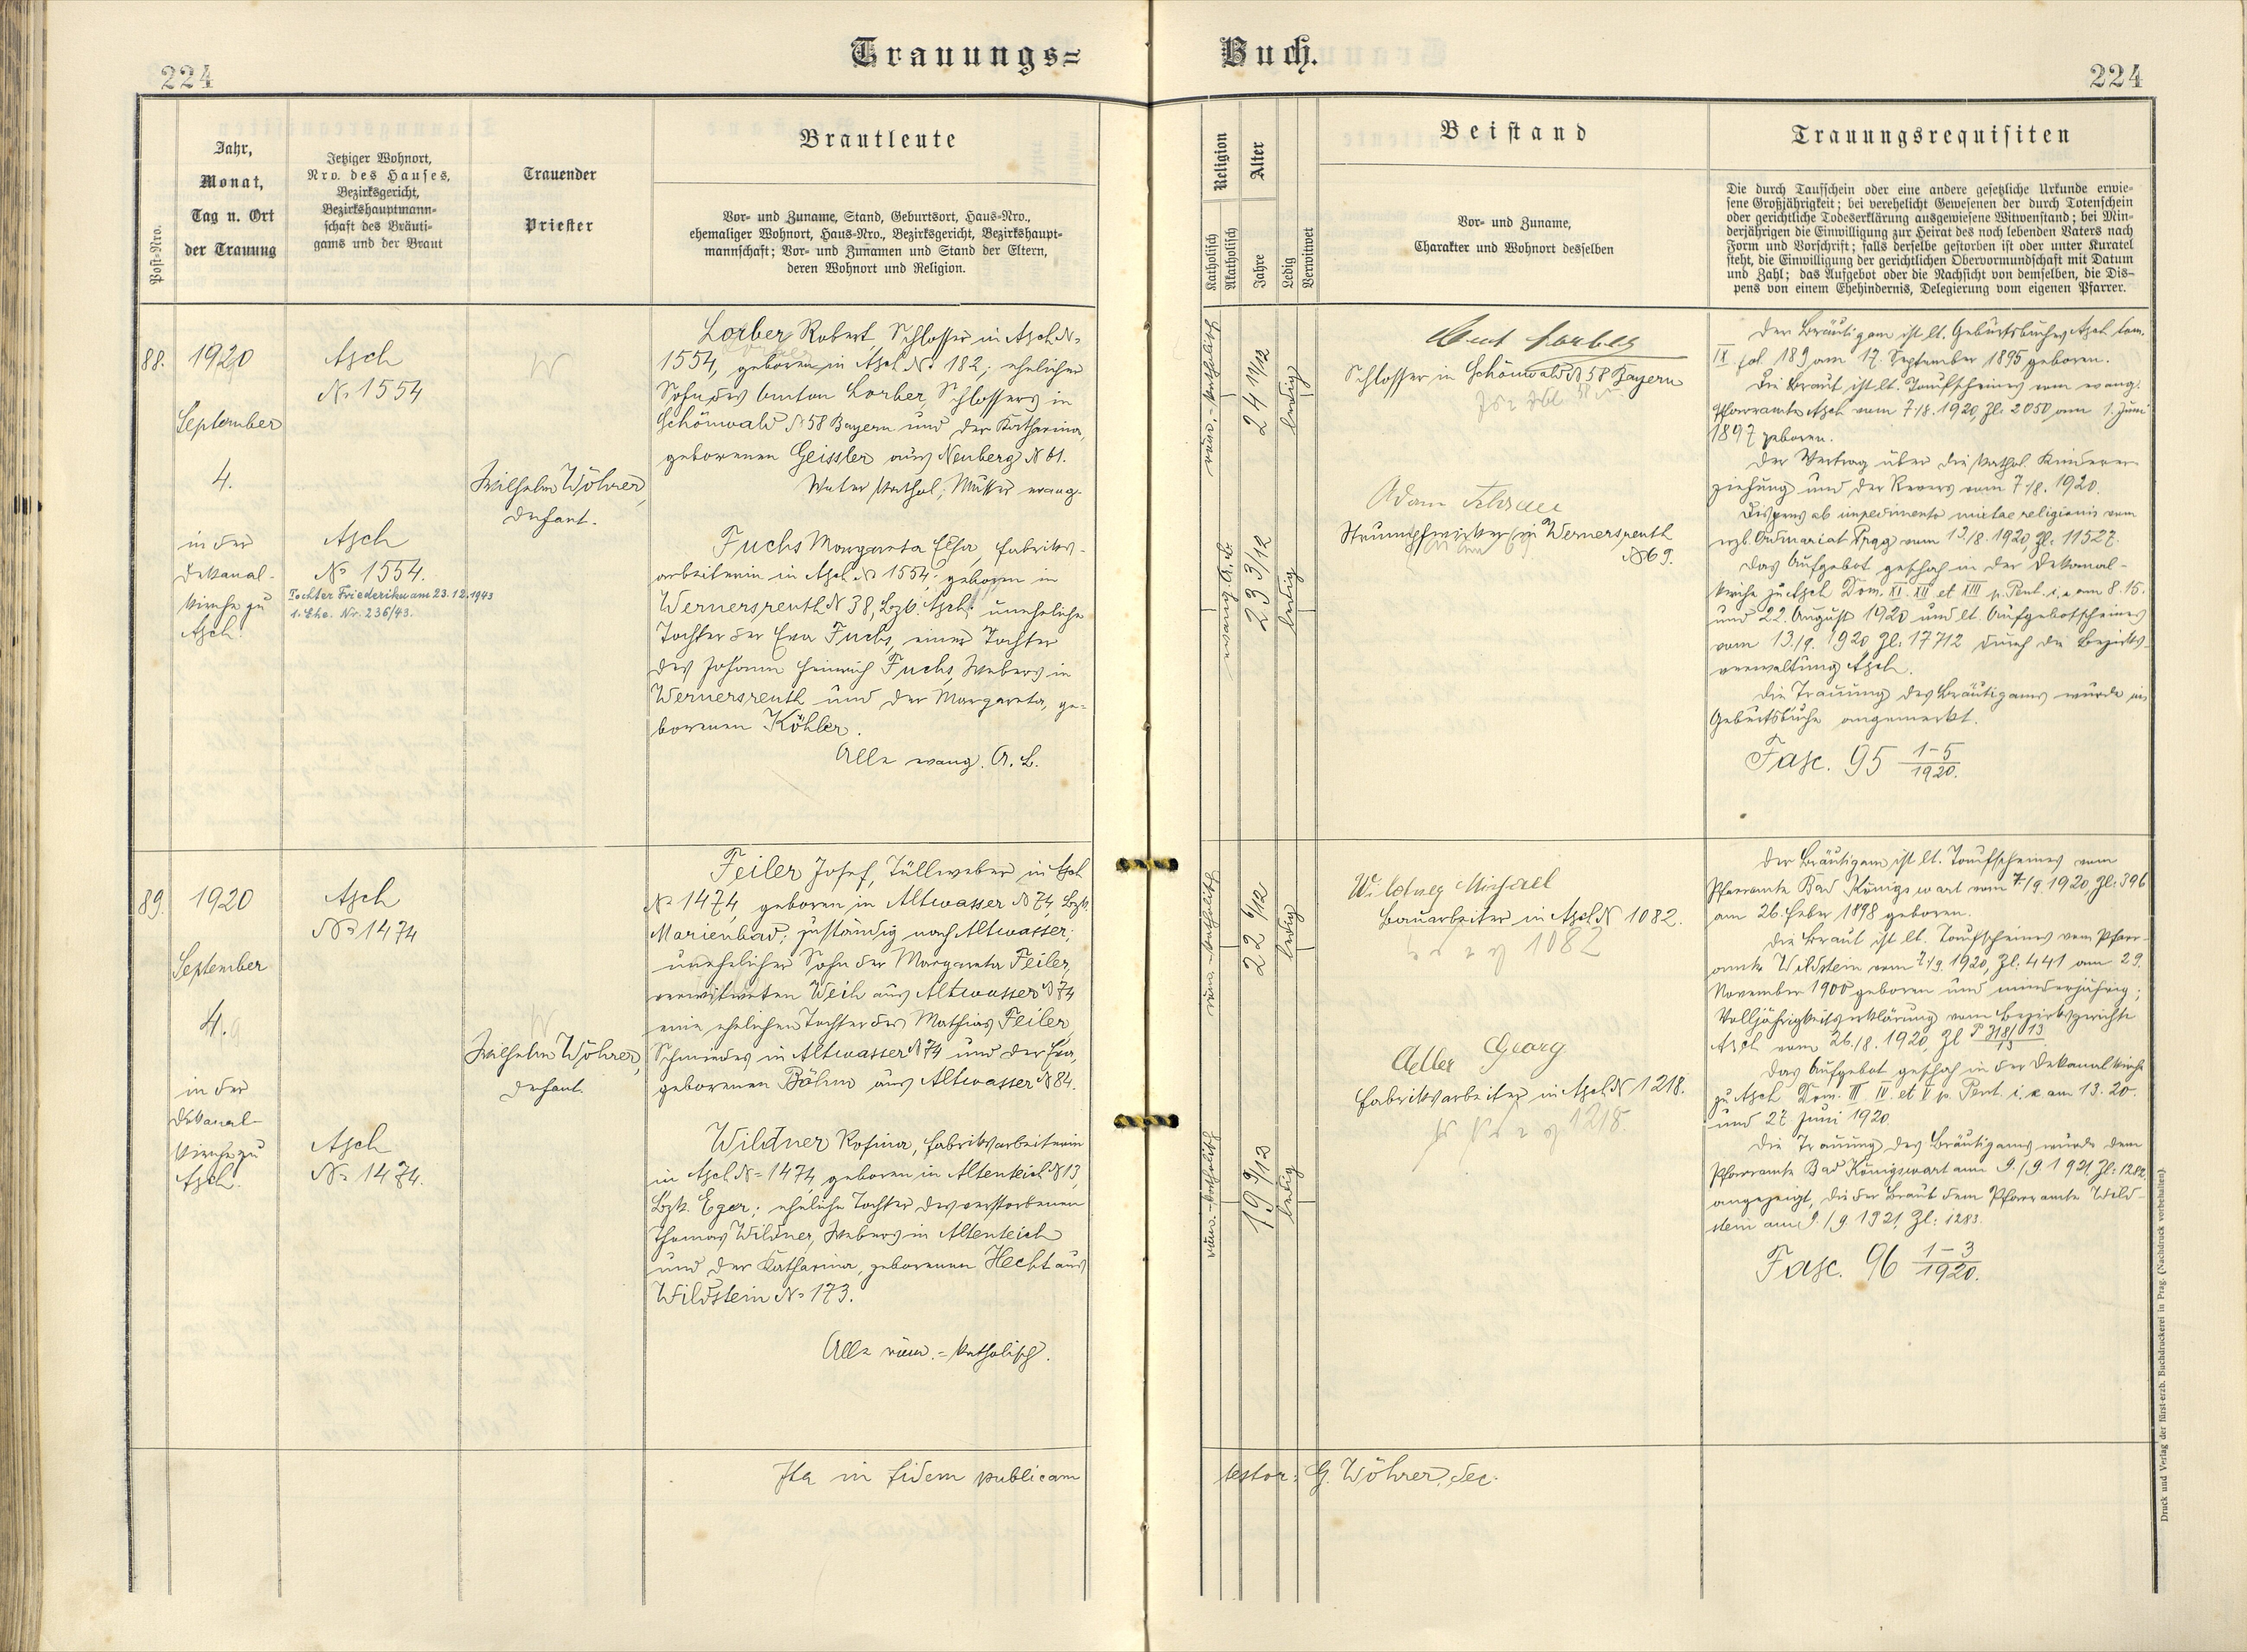 Trauungs=
Buch.
224
224
Post=Nro.
Jahr,
Monat,
Tag u. Ort
der Trauung
Jetziger Wohnort,
Nro. des Hauses,
Bezirksgericht,
Bezirkshauptmann=
schaft des Bräuti=
gams und der Braut
Trauender
Priester
Brautleute
Vor= und Zuname, Stand, Geburtsort, Haus=Nro.,
ehemaliger Wohnort, Haus=Nro., Bezirksgericht, Bezirkshaupt=
mannschaft; Vor= und Zunamen und Stand der Eltern,
deren Wohnort und Religion.
Religion
Katholisch
Akatholisch
Alter
Jahre
Ledig
Verwitwet
Beistand
Vor= und Zuname,
Charakter und Wohnort desselben
Trauungsrequisiten
Die durch Taufschein oder eine andere gesetzliche Urkunde erwie=
sene Großjährigkeit; bei verehelicht Gewesenen der durch Totenschein
oder gerichtliche Todeserklärung ausgewiesene Witwenstand; bei Min=
derjährigen die Einwilligung zur Heirat des noch lebenden Vaters nach
Form und Vorschrift; falls derselbe gestorben ist oder unter Kuratel
steht, die Einwilligung der gerichtlichen Obervormundschaft mit Datum
und Zahl; das Aufgebot oder die Nachsicht von demselben, die Dis=
pens von einem Ehehindernis, Delegierung vom eigenen Pfarrer.
88.
1920
September
4.
in der
Dekanal-
kirche zu
Asch.
Asch
№ 1554
Asch
№ 1554.
Tochter Friederike am 23.12.1943
1. Ehe. Nr. 236/43.
Wilhelm Wöhrer,
Dechant.
Lorber Robert, Schlosser in Asch №
1554, geboren in Asch № 182; ehelicher
Sohn des Anton Lorber, Schlossers in
Schönwald № 58 Bayern und der Katharina,
geborenen Geissler aus Neuberg № 61.
Vater kathol., Mutter evang.
Fuchs Margareta Elsa, Fabriks-
arbeiterin in Asch № 1554; geboren in
Wernersreuth № 38, Bzk. Asch; uneheliche
Tochter der Eva Fuchs, einer Tochter
des Johann Heinrich Fuchs, Webers in
Wernersreuth und der Margareta, ge-
borenen Köhler.
Alle evang. A. B.
röm.-katholisch
24 11/12
ledig
evang. A. B.
23 3/12
ledig
Lorber
Schlosser in Schönwald № 58 Bayern
Adam
Strumpfwirker in Wernersreuth
№ 69.
Der Bräutigam ist lt. Geburtsbuches Asch tom.
IX fol. 189 am 17. September 1895 geboren.
Die Braut ist lt. Taufscheines vom evang.
Pfarramte Asch vom 7./8. 1920, Zl: 2050 am 1. Juni
1897 geboren.
Der Vertrag über die kathol. Kinderer-
ziehung und der Revers vom 7./8. 1920.
Dispens ab impedimento mixtae religionis vom
erzb. Ordinariat Prag vom 13/8. 1920, Zl: 11527.
Das Aufgebot geschah in der Dekanal-
kirche zu Asch Dom. XI. XII et XIII p. Pent. i. e. am 8. 15.
und 22. August 1920 und lt. Aufgebotscheines
vom 13./9. 1920 Zl: 17712 durch die Bezirks-
verwaltung Asch.
Die Trauung des Bräutigams wurde im
Geburtsbuche angemerkt.
Fasc. 95 1-5/1920.
89.
1920
September
4.
in der
Dekanal-
kirche zu
Asch.
Asch
№ 1474
Asch
№ 1474.
Wilhelm Wöhrer,
Dechant.
Feiler Josef, Tüllweber in Asch
№ 1474, geboren in Altwasser № 74, Bzk.
Marienbad; zuständig nach Altwasser;
unehelicher Sohn der Margareta Feiler,
verwitweten Weih aus Altwasser № 74
eine ehelichen Tochter des Mathias Feiler,
Schmiedes in Altwasser № 74 und der Eva,
geborenen Böhm aus Altwasser № 84.
Wildner Rosina, Fabriksarbeiterin
in Asch № 1474, geboren in Altenteich № 13,
Bzk. Eger; eheliche Tochter des verstorbenen
Thomas Wildner, Webers in Altenteich
und der Katharina, geborenen Hecht aus
Wildstein № 173.
Alle röm.-katholisch.
röm.-katholisch
22 6/12
ledig
röm.-katholisch
19 9/12
ledig
Wildner Michael
Bauarbeiter in Asch № 1082.
1082
Adler Georg
Fabriksarbeiter in Asch № 1218.
1218.
Der Bräutigam ist lt. Taufscheines vom
Pfarramte Bad Königswart vom 7./9. 1920, Zl: 396
am 26. Feber 1898 geboren.
Die Braut ist lt. Taufscheines vom Pfarr-
amte Wildstein vom 7./9. 1920, Zl: 441 am 29.
November 1900 geboren und minderjährig;
Volljährigkeitserklärung vom Bezirksgerichte
Asch vom 26./8. 1920, Zl P 318/13
Das Aufgebot geschah in der Dekanalkirche
zu Asch Dom. III IV et V p. Pent. i. e. am 13. 20.
und 27. Juni 1920.
Die Trauung des Bräutigams wurde dem
Pfarramte Bad Königswart am 9./9. 1921, Zl: 1282
angezeigt, die der Braut dem Pfarramte Wild-
stein am 9./9. 1921, Zl: 1283.
Fasc. 96 1-3/1920.
Ita in fidem publicam
testor: G. Wöhrer, Dec.
Druck und Verlag der fürst-erzb. Buchdruckerei in Prag. (Nachdruck vorbehalten).